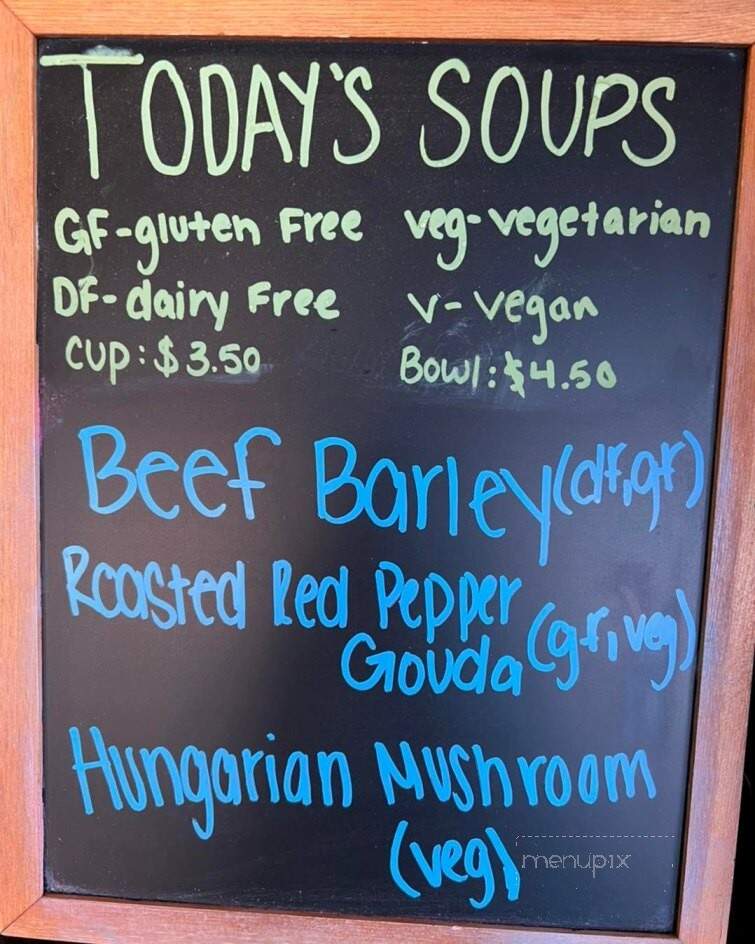 TODAY'S SOUPS
GF-gluten Free veg-vegetarian
DF-dairy Free v-vegan
CUP: $3.50 Bowl: $4.50
Beef Barley (df, gf)
Roasted Red Pepper
Gouda (gf, veg)
Hungarian Mushroom
(veg)
menupix